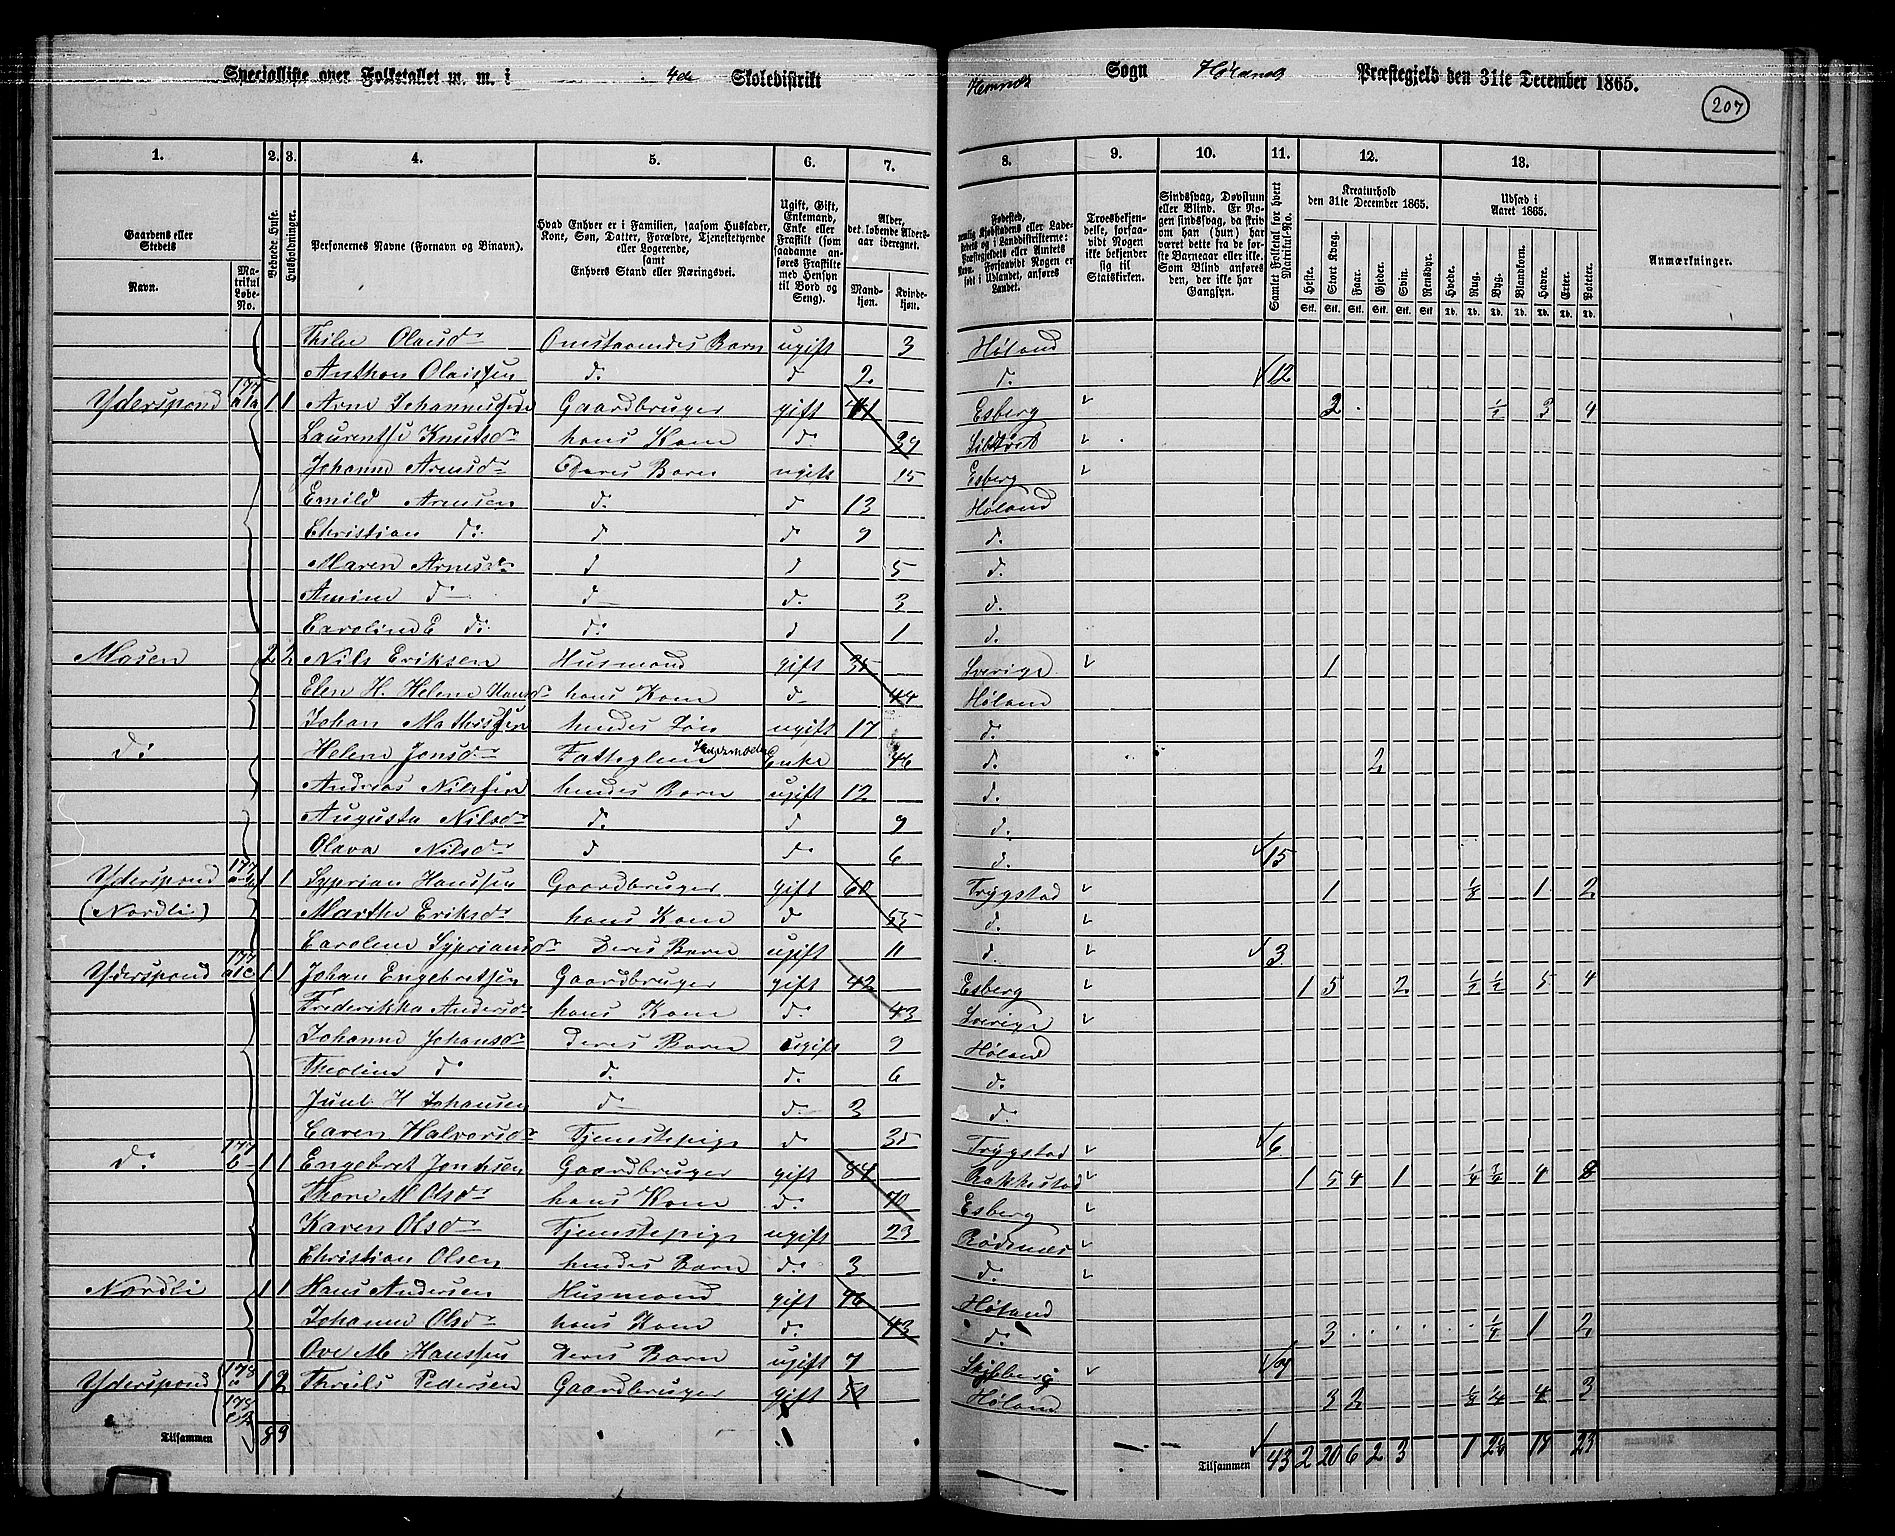 Specialliste over Folketallet m. m. i 4de Skoledistrikt Hemnæs Sogn Hølands Præstegjeld den 31te December 1865.
207
1. 2. 3. 4. 5. 6. 7. 8. 9. 10. 11. 12. 13.
Gaardens eller Stedets
Navn.
Matrikul Løbe-No.
Beboede Huse.
Husholdninger.
Personernes Navne (Fornavn og Binavn).
Hvad Enhver er i Familien, saasom Husfader, Kone, Søn, Datter, Forældre, Tjenestetyende eller Logerende, samt Enhvers Stand eller Næringsvei.
Ugift, Gift, Enkemand, Enke eller Fraskilt (som saadanne anføres Fraskilte med Hensyn til Bord og Seng).
Alder, det løbende Aldersaar iberegnet.
Mandkjøn. Kvindekjøn.
Fødested,
Troesbekjendelse, forsaavidt Nogen ikke bekjender sig til Statskirken.
Sindssvag, Døvstum eller Blind. Er Nogen sindssvag, da skriv om han (hun) har været dette fra de første Barneaar eller ikke. Som Blind anføres den, der ikke har Gangsyn.
Samlet Folketal for hvert Matrikul-No.
Kreaturhold den 31te December 1865.
Heste. Stort Kvæg. Faar. Gjeder. Svin. Rensdyr.
Udsæd i Aaret 1865.
Hvede. Rug. Byg. Blandkorn. Havre. Erter. Poteter.
Stk. Stk. Stk. Stk. Stk. Stk. Td. Td. Td. Td. Td. Td. Td.
Anmærkninger.
Thilve Olausdr Omstaaendes Barn ugift 3 Høland
Anthon Olaissen d. d 2 d. 12
Yderspond 177 a1a 1 1 Arne Johannessen Gaardbruger gift 41 Esberg 2 ½ 3 4
Laurentse Knutsdr hans Kone d 39
Johanne Arnesdr Deres Barn ugift 15 Esberg
Emild Arnesen d. d 13 Høland
Christian d: d d 9 d.
Maren Arnesdr d d 5 d.
Amine d d d. 3 d.
Caroline E d: d: d 1 d.
Mosen 2 2 Nils Eriksen Husmand gift 35 Sverige 1
Elen H. Helene Hansdr hans Kone d 44 Høland
Johan Mathissen hendes Søn ugift 17 d.
d: Helene Jensdr Fatteglem Enke 46 d. 2
Andreas Nilssen hendes Barn ugift 12 d.
Augusta Nilsdr d. d 9 d.
Olava Nilsdr d d 6 d. 15
Yderspond 177 1 1 Syprian Hanssen Gaardbruger gift 60 Trygstad 1 1 2
(Nordli) Marthe Eriksdr hans Kone d 55 d.
Caroline Sypriansdr Deres Barn ugift 11 d. 3
Yderspond 177 a1c 1 1 Johan Engebretsen Gaardbruger gift 42 Esberg 1 5 2 ½ ½ 5 4
Frederikka Andersdr hans Kone d. 43 Sverige
Johanne Johansdr Deres Barn ugift 9 Høland
Theoline d. d. d. 6 d.
Juul H Johansen d d. 3 d.
Caren Halvorsdr Tjenestepige d 35 Trygstad 6
d: 177 b 1 1 Engebret Gaardbruger gift 84 Rakkestad 1 5 4 1 ¼ ¾ 4 8
Thore M Olsdr hans Kone d. 71 Esberg
Karen Olsdr Tjenestepige ugift 23 Rødenæs
Christian Olsen hendes Barn d. 3 d.
Nordli 1 1 Hans Andersen Husmand gift 46 Høland
Johanne Olsdr hans Kone d. 43 d. 3 ¼ 1 2
Ove M Hanssen Deres Barn ugift 7 7
Yderspond 178 a 1 2 Thruls Pedersen Gaardbruger gift 51 Høland 3 2 ½ ¼ 4 3
178
Tilsammen 8 9
Tilsammen 43 2 20 6 2 3 1 18 23